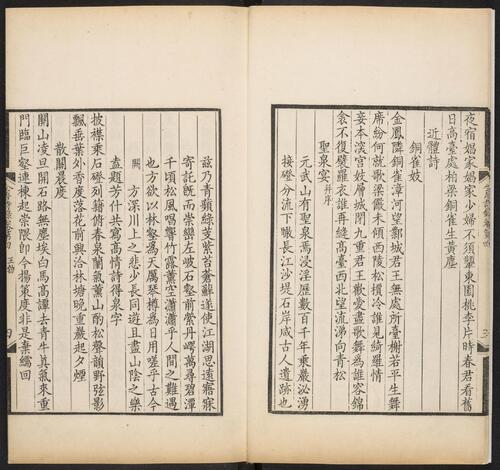 夜宿娼家娼家少婦不須顰東園桃李片時春君看舊
日高臺處柏梁銅雀生黃塵
近體詩
銅雀妓
金鳳隣銅雀漳河望鄴城君王無處所臺榭若平生舞
席紛何就歌梁儼未傾西陵松檟冷誰見綺羅情
妾本深宮妓層城閉九重君王歡愛盡歌舞為誰容錦
衾不復襞羅衣誰再縫高臺西北望流涕向青松
聖泉宴并序
元武山有聖泉焉浸淫歷數百千年乗巖泌湧
接磴分流下瞰長江沙堤石岸咸古人遺跡也
兹乃青蘋綠芰紫苔蒼蘚遂使江湖思遠寤寐
寄託既而崇巒左峻石壑前縈丹崿萬尋碧潭
千頃松風唱響竹露薰空瀟瀟乎人間之難遇
也方欲以林壑為天屬琴樽為日用嗟乎古今
闕 方深川上之悲少長同遊且盡山陰之樂
盍題芳什共寫高情詩得泉字
披襟乗石磴列籍俯春泉蘭氣薰山酌松聲韻野弦影
飄垂葉外香度落花前興洽林塘晚重巖起夕煙
散關晨度
關山凌旦開石路無塵埃白馬高譚去青牛真氣來重
門臨巨壑連棟起崇隈即今揚策度非是棄繻回
王勃
四